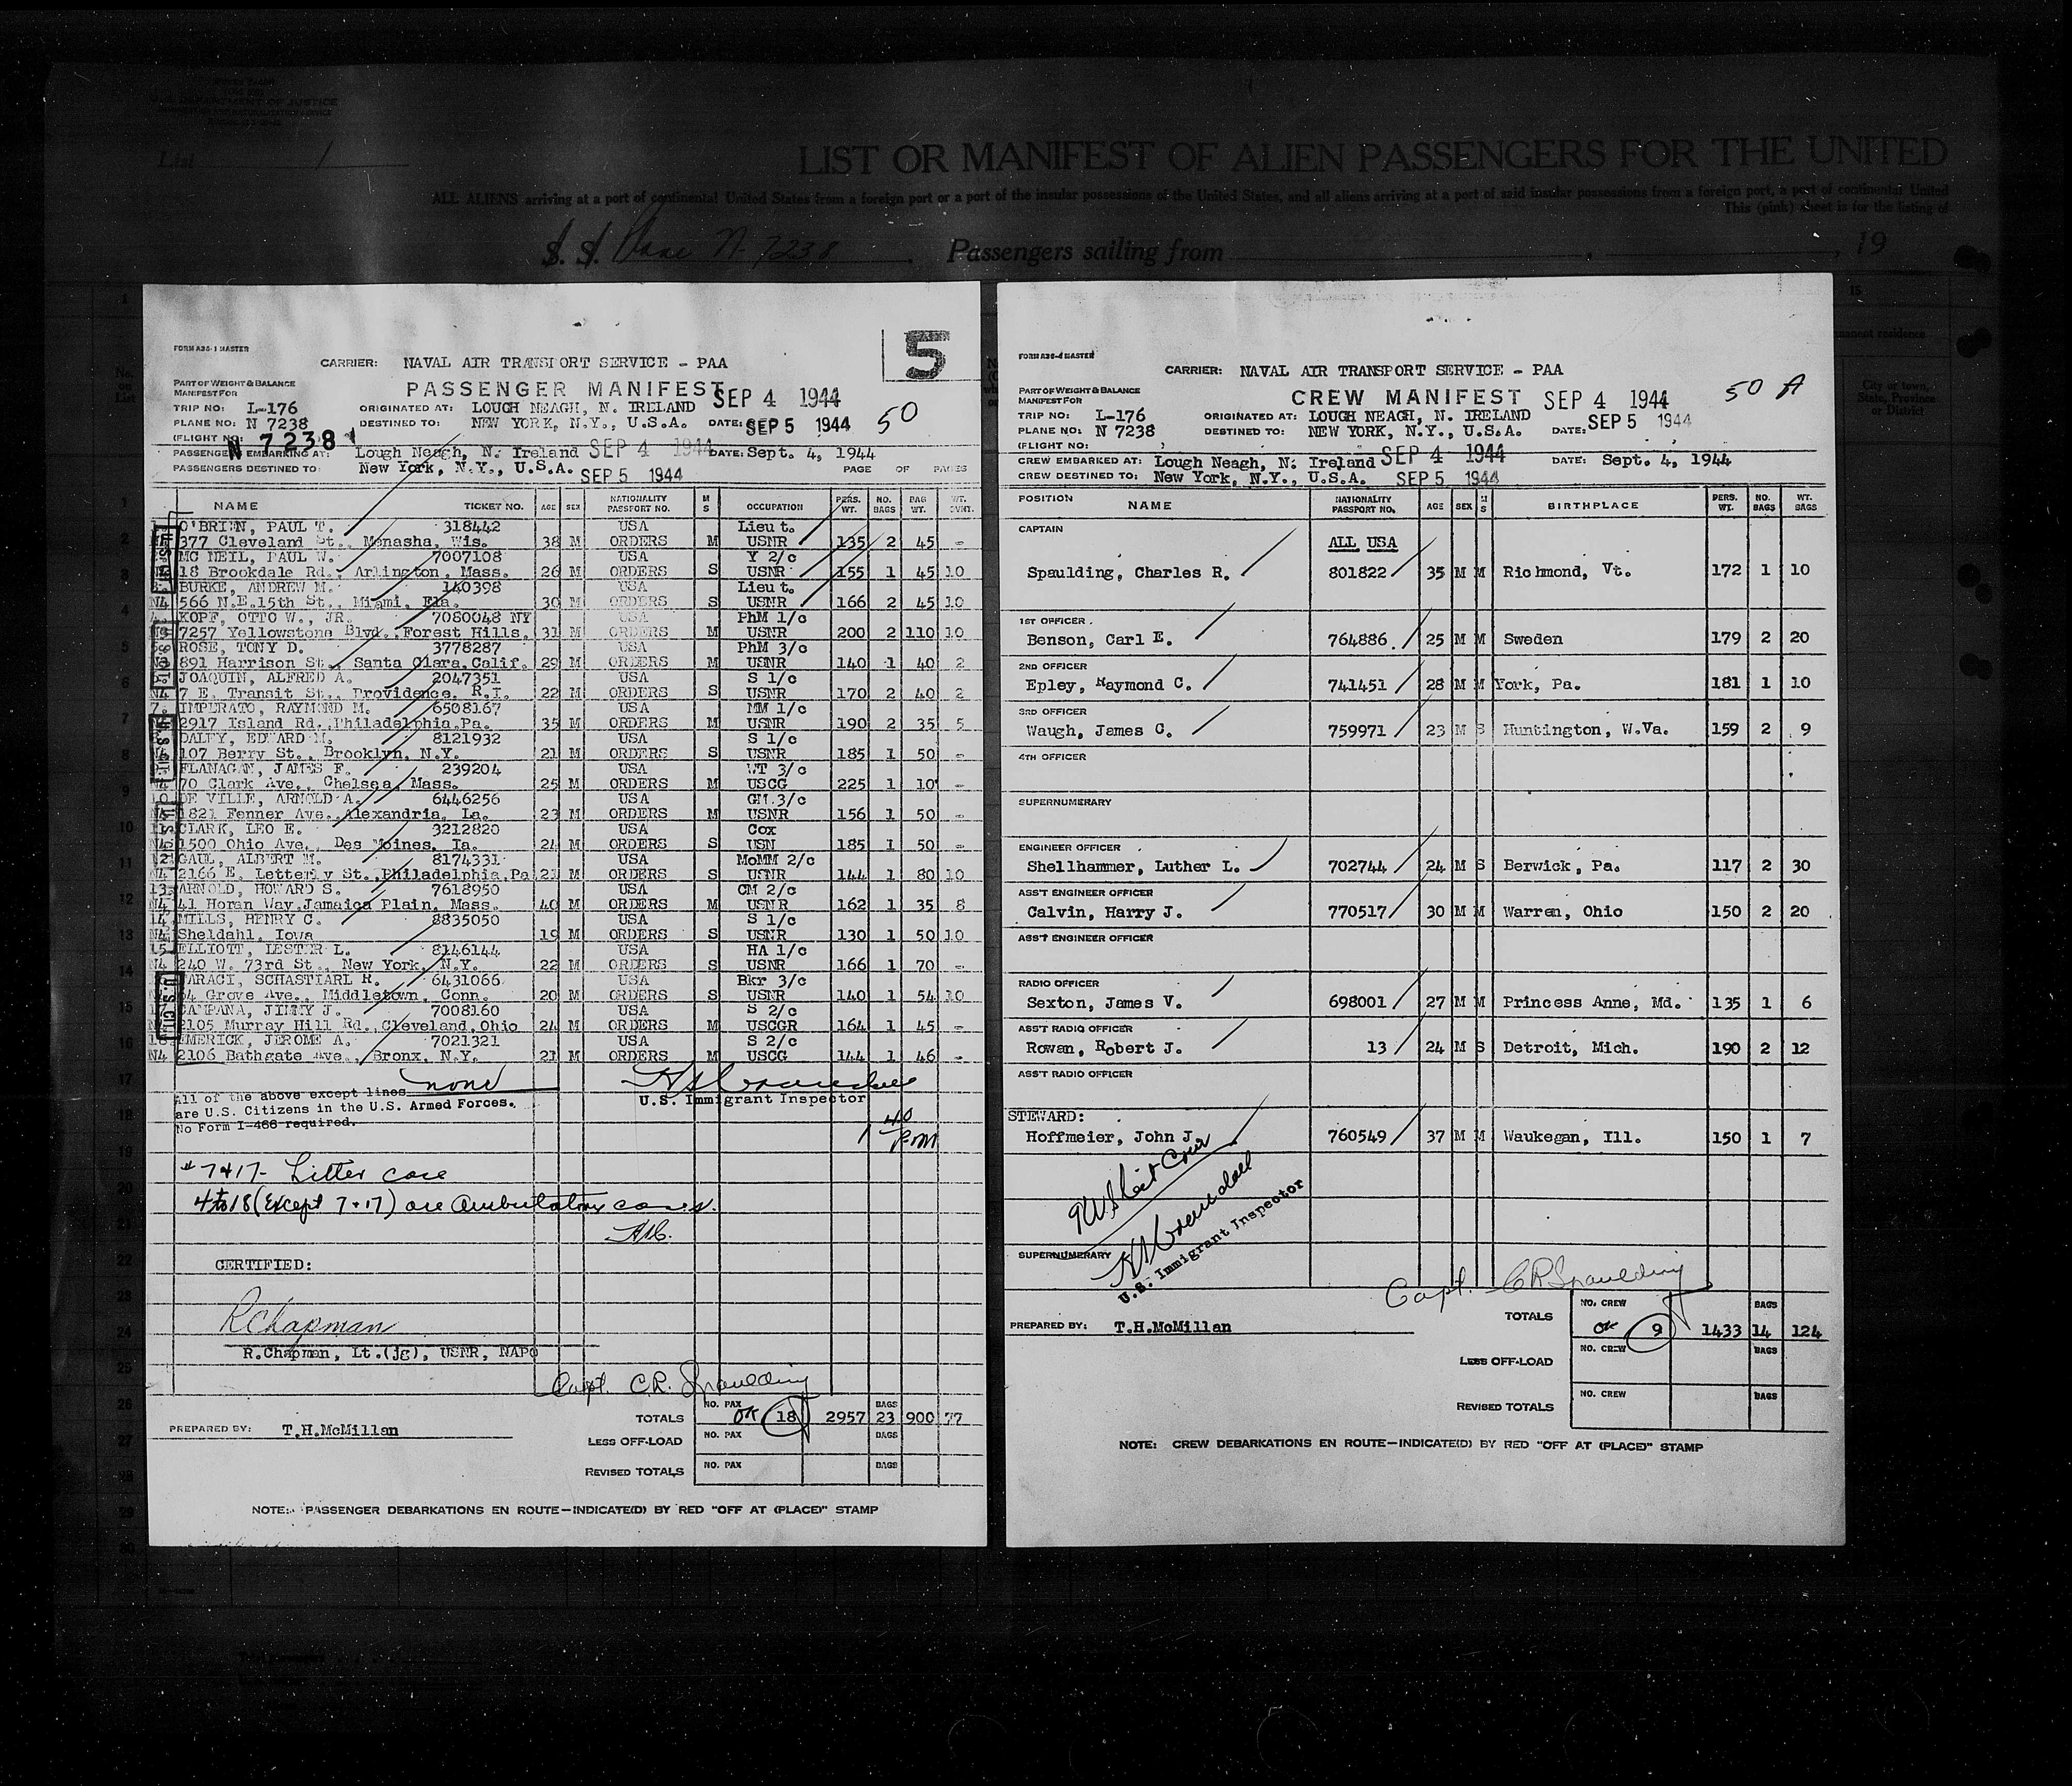 LIST OR MANIFEST OF ALIEN PASSENGERS FOR THE UNITED
List 1
ALL ALIENS arriving at a port of continental United States from a foreign port or a port of the insular possessions of the United States, and all aliens arriving at a port of said insular possessions from a foreign port, a port of continental United
This (pink) sheet is for the listing of
S. S. N-7238 Passengers sailing from , , 19
5
FORM A36-1 MASTER
CARRIER: NAVAL AIR TRANSPORT SERVICE - PAA
PART OF WEIGHT & BALANCE
MANIFEST FOR
PASSENGER MANIFEST SEP 4 1944
TRIP NO: L-176 ORIGINATED AT: LOUGH NEAGH, N. IRELAND
PLANE NO: N 7238 DESTINED TO: NEW YORK, N.Y., U.S.A. DATE: SEP 5 1944 50
(FLIGHT NO: N 7238
PASSENGERS EMBARKING AT: Lough Neagh, N. Ireland SEP 4 1944 DATE: Sept. 4, 1944
PASSENGERS DESTINED TO: New York, N.Y., U.S.A. SEP 5 1944 PAGE OF PAGES
NAME TICKET NO. AGE SEX NATIONALITY PASSPORT NO. M S OCCUPATION PERS. WT. NO. BAGS BAG WT. WT. OVNT.
O'BRIEN, PAUL T. 318442 USA Lieut.
377 Cleveland St., Menasha, Wis. 38 M ORDERS M USNR 135 2 45 -
MC NEIL, PAUL W. 7007108 USA Y 2/c
18 Brookdale Rd., Arlington, Mass. 26 M ORDERS S USNR 155 1 45 10
BURKE, ANDREW M. 140398 USA Lieut.
566 N.E.15th St., Miami, Fla. 30 M ORDERS S USNR 166 2 45 10
KOPF, OTTO W., JR. 7080048 NY USA PhM 1/c
7257 Yellowstone Blvd., Forest Hills, 31 M ORDERS M USNR 200 2 110 10
ROSE, TONY D. 3778287 USA PhM 3/c
891 Harrison St., Santa Clara,Calif. 29 M ORDERS M USNR 140 1 40 2
JOAQUIN, ALFRED A. 2047351 USA S 1/c
7 E. Transit St., Providence, R.I. 22 M ORDERS S USNR 170 2 40 2
7. IMPERATO, RAYMOND M. 6508167 USA MM 1/c
2917 Island Rd. Philadelphia,Pa. 35 M ORDERS M USNR 190 2 35 5
DALEY, EDWARD M. 8121932 USA S 1/c
107 Berry St., Brooklyn, N.Y. 21 M ORDERS S USNR 185 1 50 -
FLANAGAN, JAMES F. 239204 USA WT 3/c
70 Clark Ave., Chelsea, Mass. 25 M ORDERS M USCG 225 1 10 -
10 DE VILLE, ARNOLD A. 6446256 USA GM.3/c
1821 Fenner Ave., Alexandria, La. 23 M ORDERS M USNR 156 1 50 -
CLARK, LEO E. 3212820 USA Cox
1500 Ohio Ave., Des Moines, Ia. 24 M ORDERS S USN 185 1 50 -
12 GAUL, ALBERT M. 8174331 USA MoMM 2/c
2166 E. Letterly St., Philadelphia,Pa 21 M ORDERS S USNR 144 1 80 10
13. ARNOLD, HOWARD S. 7618950 USA CM 2/c
N4 41 Horan Way,Jamaica Plain, Mass. 40 M ORDERS M USNR 162 1 35 8
14. MILLS, HENRY C. 8835050 USA S 1/c
N4 Sheldahl, Iowa 19 M ORDERS S USNR 130 1 50 10
15. ELLIOTT, LESTER L. 8146144 USA HA 1/c
N4 240 W. 73rd St., New York, N.Y. 22 M ORDERS S USNR 166 1 70 -
ARACI, SCHASTIARL R. 6431066 USA Bkr 3/c
64 Grove Ave., Middletown, Conn. 20 M ORDERS S USNR 140 1 54 10
CAMPANA, JIMMY J. 7008160 USA S 2/c
2105 Murray Hill Rd., Cleveland,Ohio 24 M ORDERS M USCGR 164 1 45 -
18. EMERICK, JEROME A. 7021321 USA S 2/c
N4 2106 Bathgate Ave., Bronx, N.Y. 21 M ORDERS M USCG 144 1 46 -
All of the above except lines none
are U.S. Citizens in the U.S. Armed Forces.
No Form I-466 required.
U.S. Immigrant Inspector
1 40 P.M
#7+17- Litter case
4 to 18 (Except 7+17) are Ambulatory cases.
CERTIFIED:
RChapman
R.Chapman, Lt.(jg), USNR, NAPO
Capt. C.R. Spaulding
TOTALS NO. PAX OK 18 2957 BAGS 23 900 77
PREPARED BY: T.H.McMillan
LESS OFF-LOAD NO. PAX BAGS
REVISED TOTALS NO. PAX BAGS
NOTE: PASSENGER DEBARKATIONS EN ROUTE—INDICATE(D) BY RED "OFF AT (PLACE)" STAMP
FORM A36-4 MASTER
CARRIER: NAVAL AIR TRANSPORT SERVICE - PAA
PART OF WEIGHT & BALANCE
MANIFEST FOR
CREW MANIFEST SEP 4 1944 50 A
TRIP NO: L-176 ORIGINATED AT: LOUGH NEAGH, N. IRELAND
PLANE NO: N 7238 DESTINED TO: NEW YORK, N.Y., U.S.A. DATE: SEP 5 1944
(FLIGHT NO:
CREW EMBARKED AT: Lough Neagh, N. Ireland SEP 4 1944 DATE: Sept. 4, 1944
CREW DESTINED TO: New York, N.Y., U.S.A. SEP 5 1944
POSITION NAME NATIONALITY PASSPORT NO. AGE SEX M S BIRTHPLACE PERS. WT. NO. BAGS WT. BAGS
CAPTAIN
ALL USA
Spaulding, Charles R. 801822 35 M M Richmond, Vt. 172 1 10
1ST OFFICER
Benson, Carl E. 764886 25 M M Sweden 179 2 20
2ND OFFICER
Epley, Raymond C. 741451 28 M M York, Pa. 181 1 10
3RD OFFICER
Waugh, James C. 759971 23 M S Huntington, W.Va. 159 2 9
4TH OFFICER
SUPERNUMERARY
ENGINEER OFFICER
Shellhammer, Luther L. 702744 24 M S Berwick, Pa. 117 2 30
ASS'T ENGINEER OFFICER
Calvin, Harry J. 770517 30 M M Warren, Ohio 150 2 20
ASS'T ENGINEER OFFICER
RADIO OFFICER
Sexton, James V. 698001 27 M M Princess Anne, Md. 135 1 6
ASS'T RADIO OFFICER
Rowan, Robert J. 13 24 M S Detroit, Mich. 190 2 12
ASS'T RADIO OFFICER
STEWARD:
Hoffmeier, John J. 760549 37 M M Waukegan, Ill. 150 1 7
U.S. Immigrant Inspector
SUPERNUMERARY
Capt. C.R. Spaulding
TOTALS NO. CREW OK 9 1433 BAGS 14 124
PREPARED BY: T.H.McMillan
LESS OFF-LOAD NO. CREW BAGS
REVISED TOTALS NO. CREW BAGS
NOTE: CREW DEBARKATIONS EN ROUTE—INDICATE(D) BY RED "OFF AT (PLACE)" STAMP